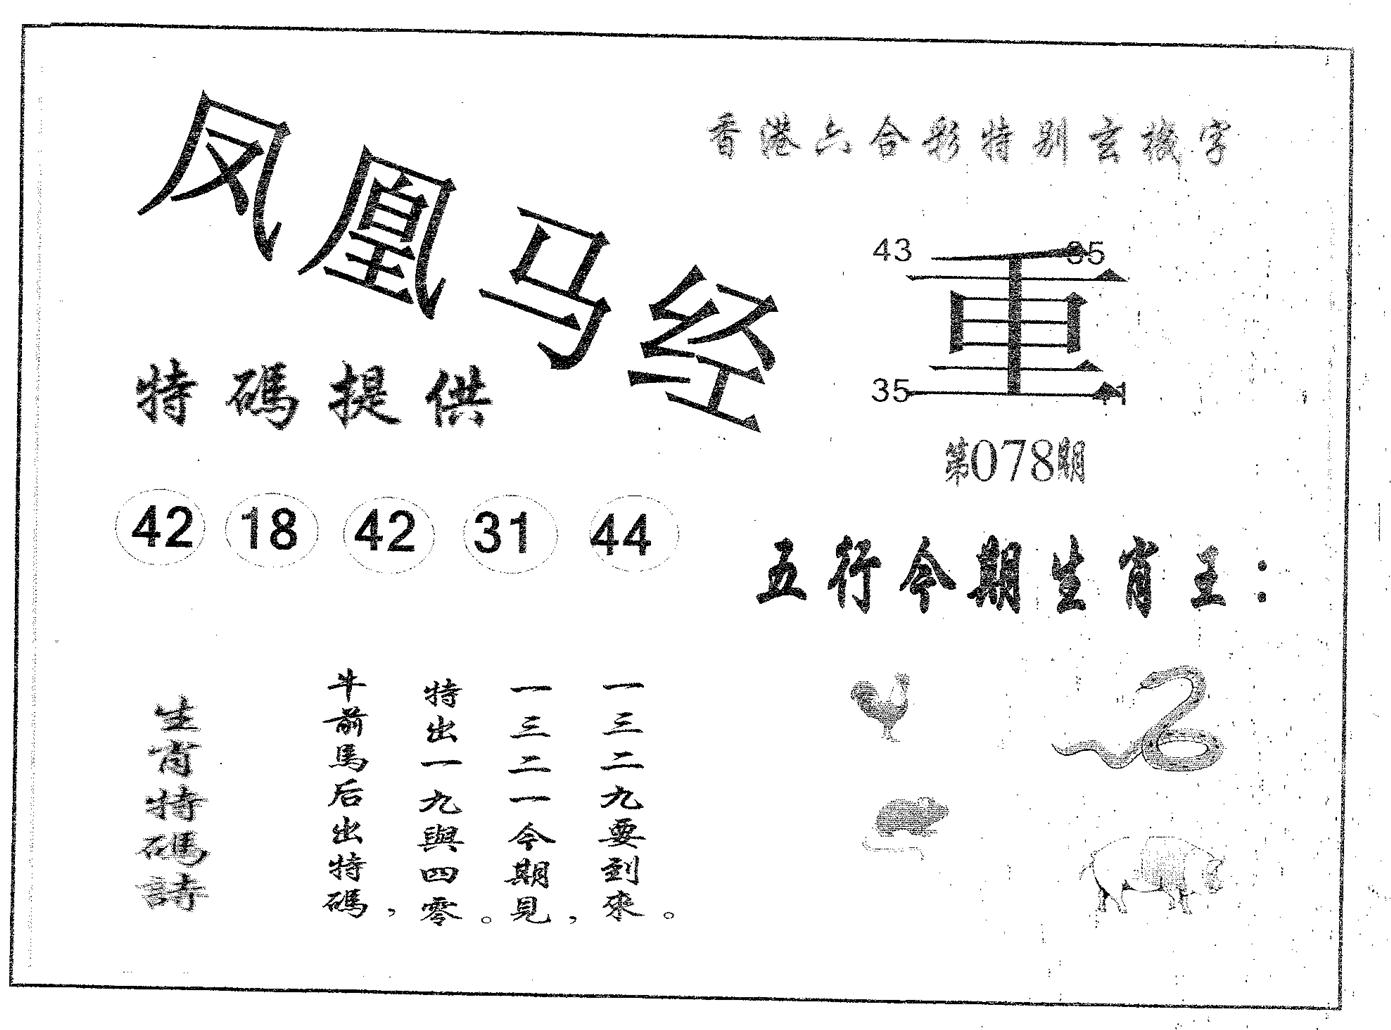 凤凰马经
香港六合彩特别玄機字
43 35
重
35
第078期
特碼提供
42 18 42 31 44
五行今期生肖王：
生肖特碼詩
牛前馬后出特碼，
特出一九與四零。
一三二一今期見，
一三二九要到來。